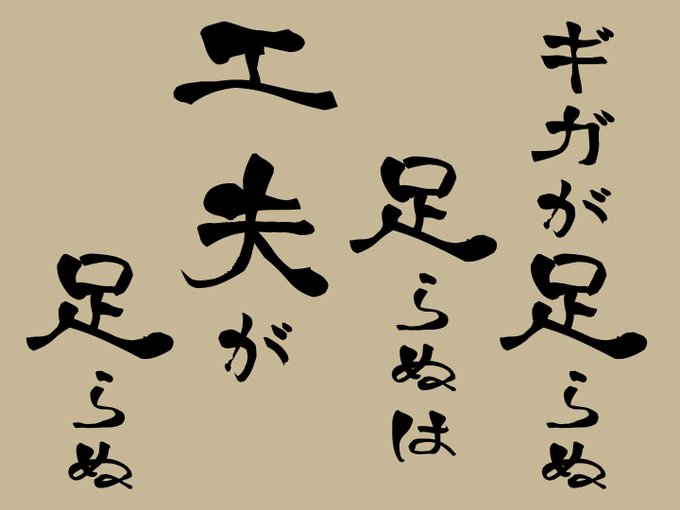 ギガが足らぬ
足らぬは
工夫が
足らぬ